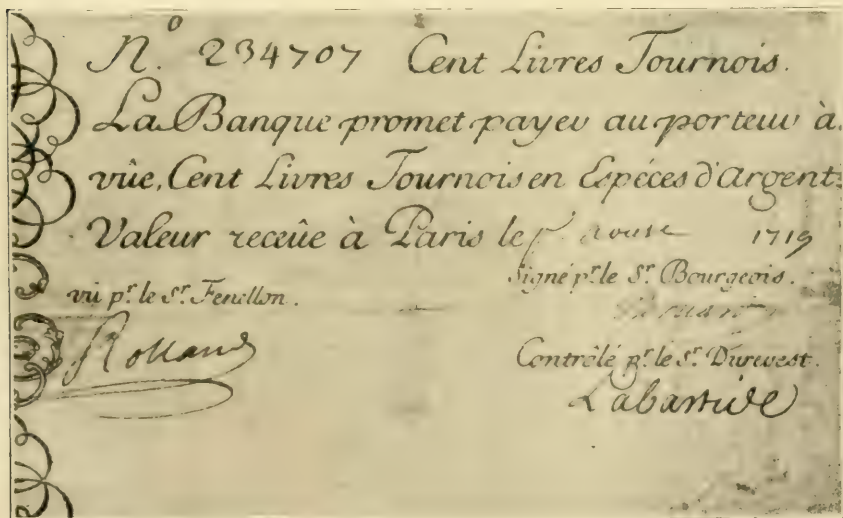 N.º 234707 Cent Livres Tournois.
La Banque promet payer au porteur à
vûe, Cent Livres Tournois en Espéces d'argent
Valeur receüe à Paris le 1719
vû pr. le Sr. Fenellon.
Signé pr. le Sr. Bourgeois.
Rolland
Contrôlé pr. le Sr. Durevest.
Labastide